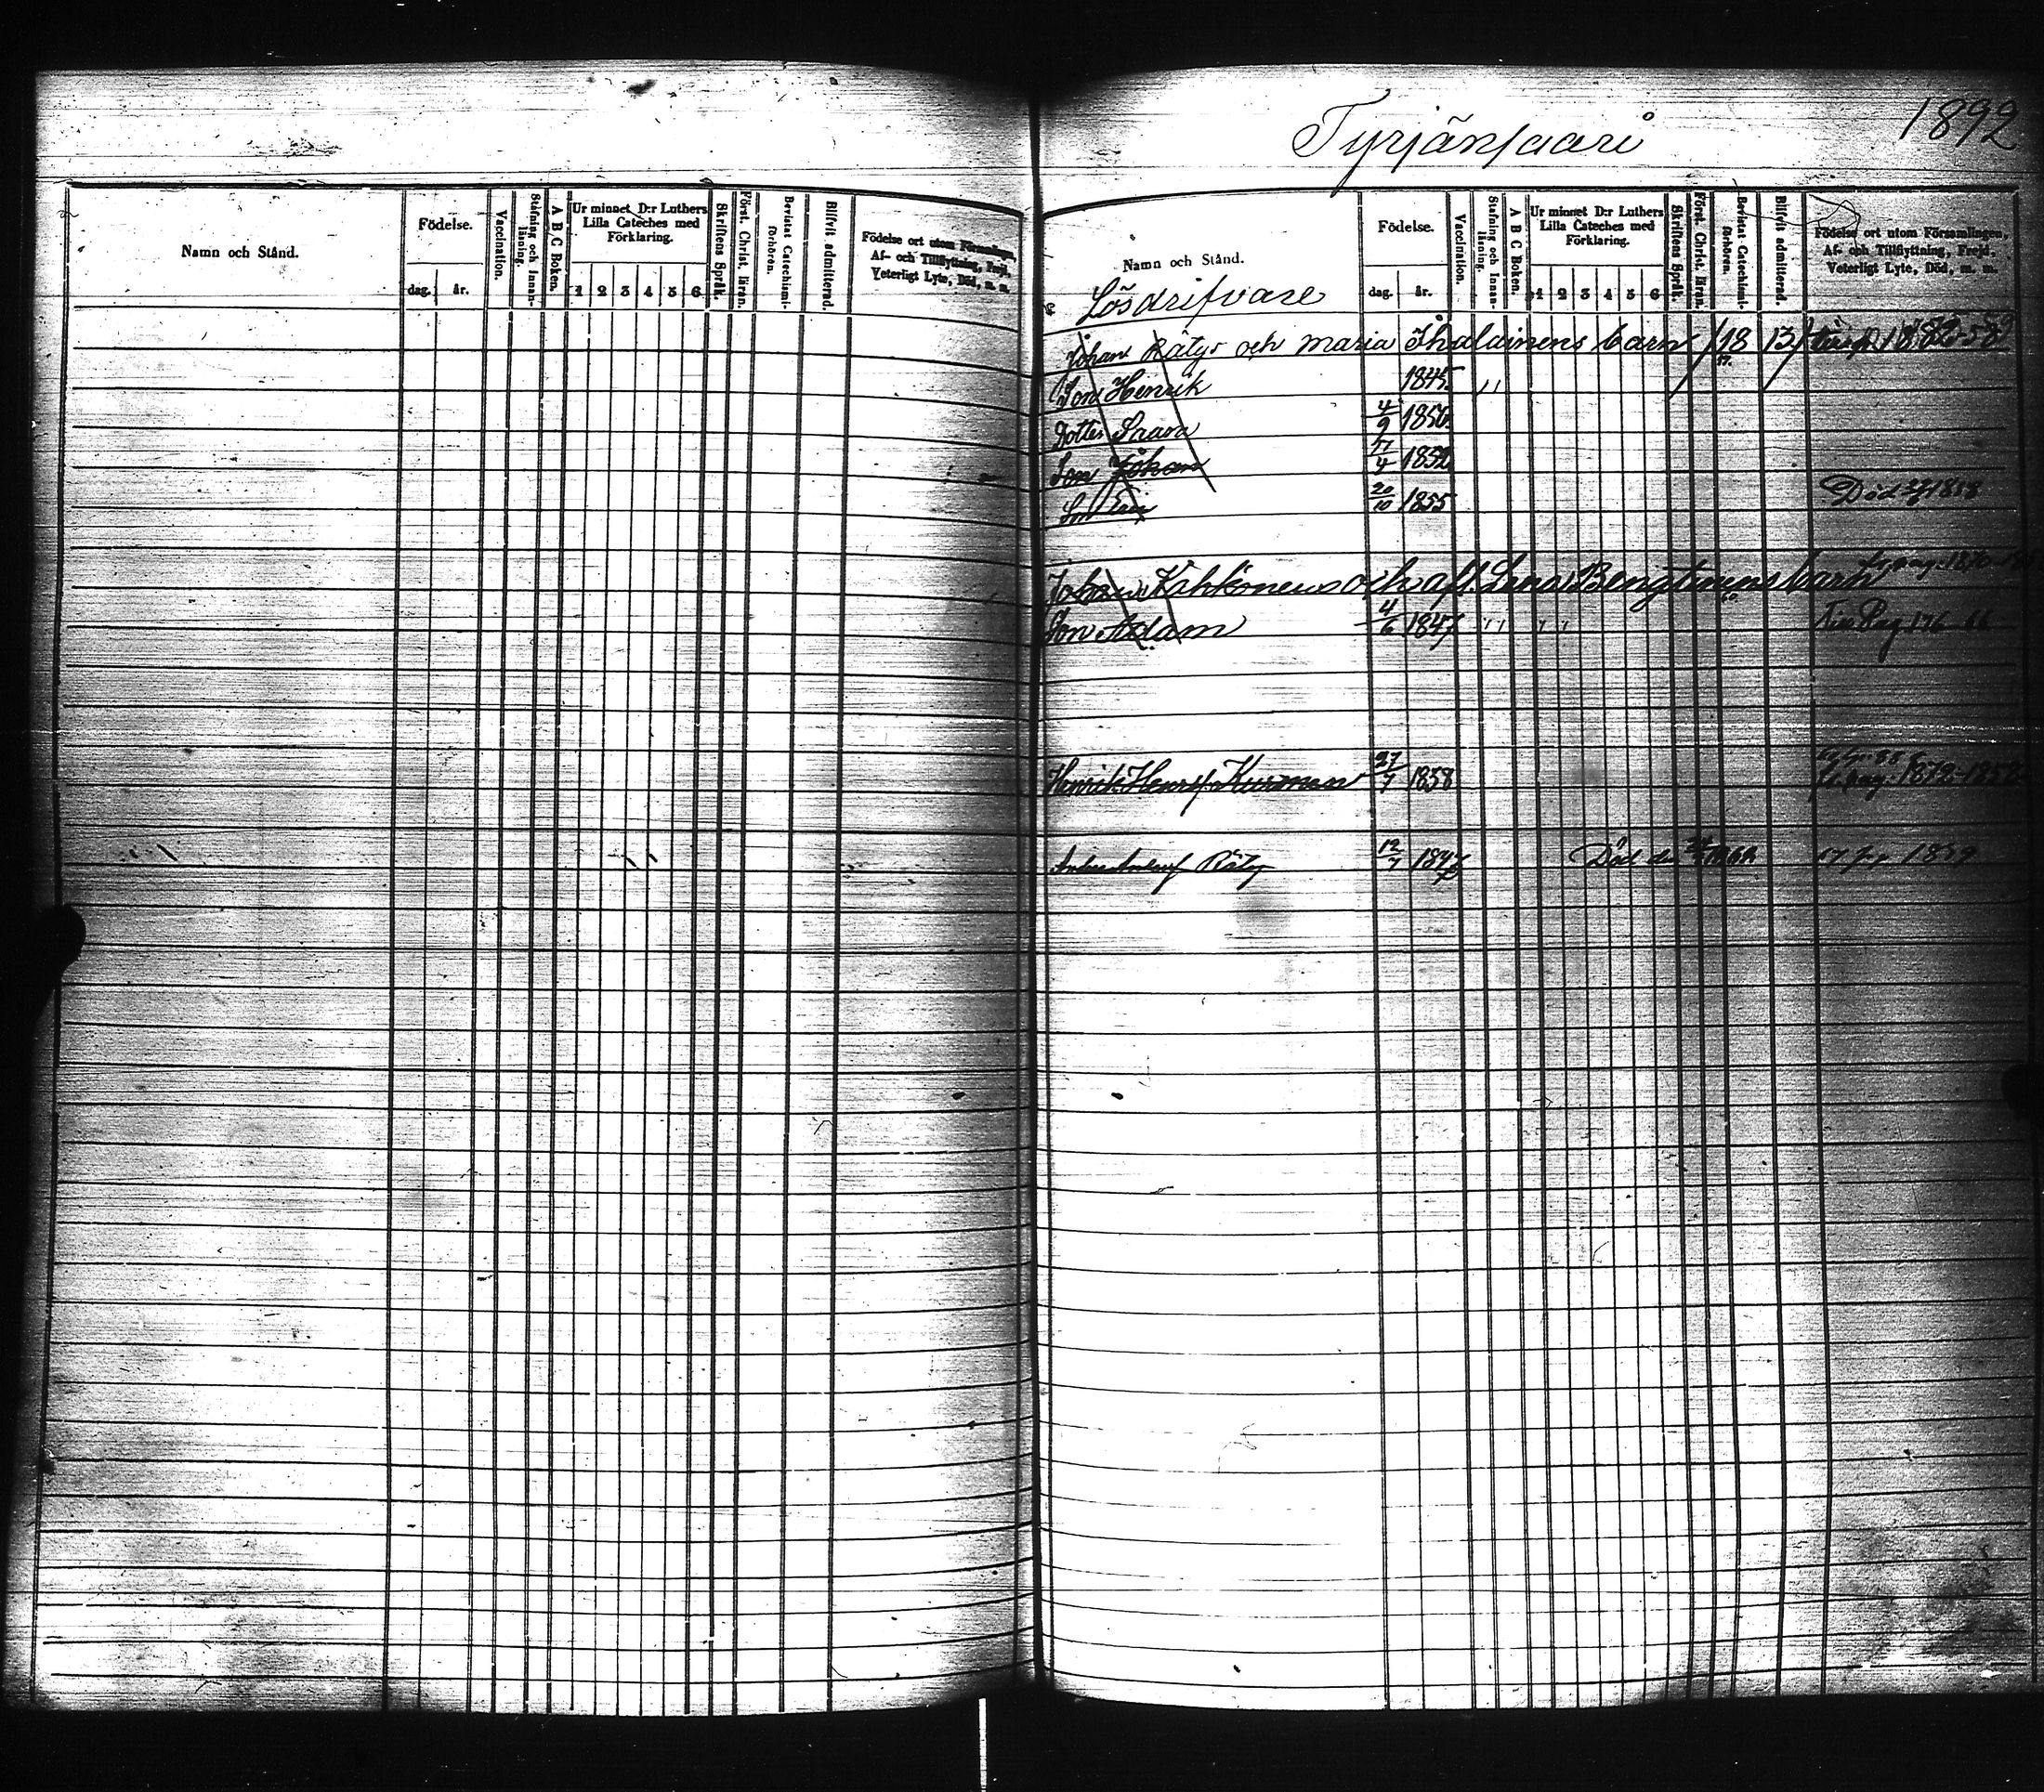 Tyrjänsaari
1892
Namn och Stånd.
Födelse.
dag.
år.
Vaccination.
Stafning och Innan-
läsning.
A B C Boken.
Ur minnet D:r Luthers
Lilla Cateches med
Förklaring.
1 2 3 4 5 6
Skriftens Språk.
Först. Christ. läran.
Bevistat Catechismi-
förhören.
Blifvit admitterad.
Födelse ort utom Församlingen,
Af- och Tillflyttning, Frejd,
Veterligt Lyte, Död, m. m.
Namn och Stånd.
Lösdrifvare
Födelse.
dag.
år.
Vaccination.
Stafning och Innan-
läsning.
A B C Boken.
Ur minnet D:r Luthers
Lilla Cateches med
Förklaring.
1 2 3 4 5 6
Skriftens Språk.
Först. Christ. läran.
Bevistat Catechismi-
förhören.
Blifvit admitterad.
Födelse ort utom Församlingen,
Af- och Tillflyttning, Frejd,
Veterligt Lyte, Död, m. m.
Johan Rätys och Maria Ihalainens barn 18 13
Son Henrik 1845
Dotter 4/9 1850
Son Johan 7/4 1852
Son 20/10 1855 Död 1858
Johan Kähkönens och afl. Lena Bengtinens barn
Son Adam 4/6 1847
Henrik Henrs. Kuronen 27/7 1858 1872-1858
Räty 12/7 1847 Död den 1859